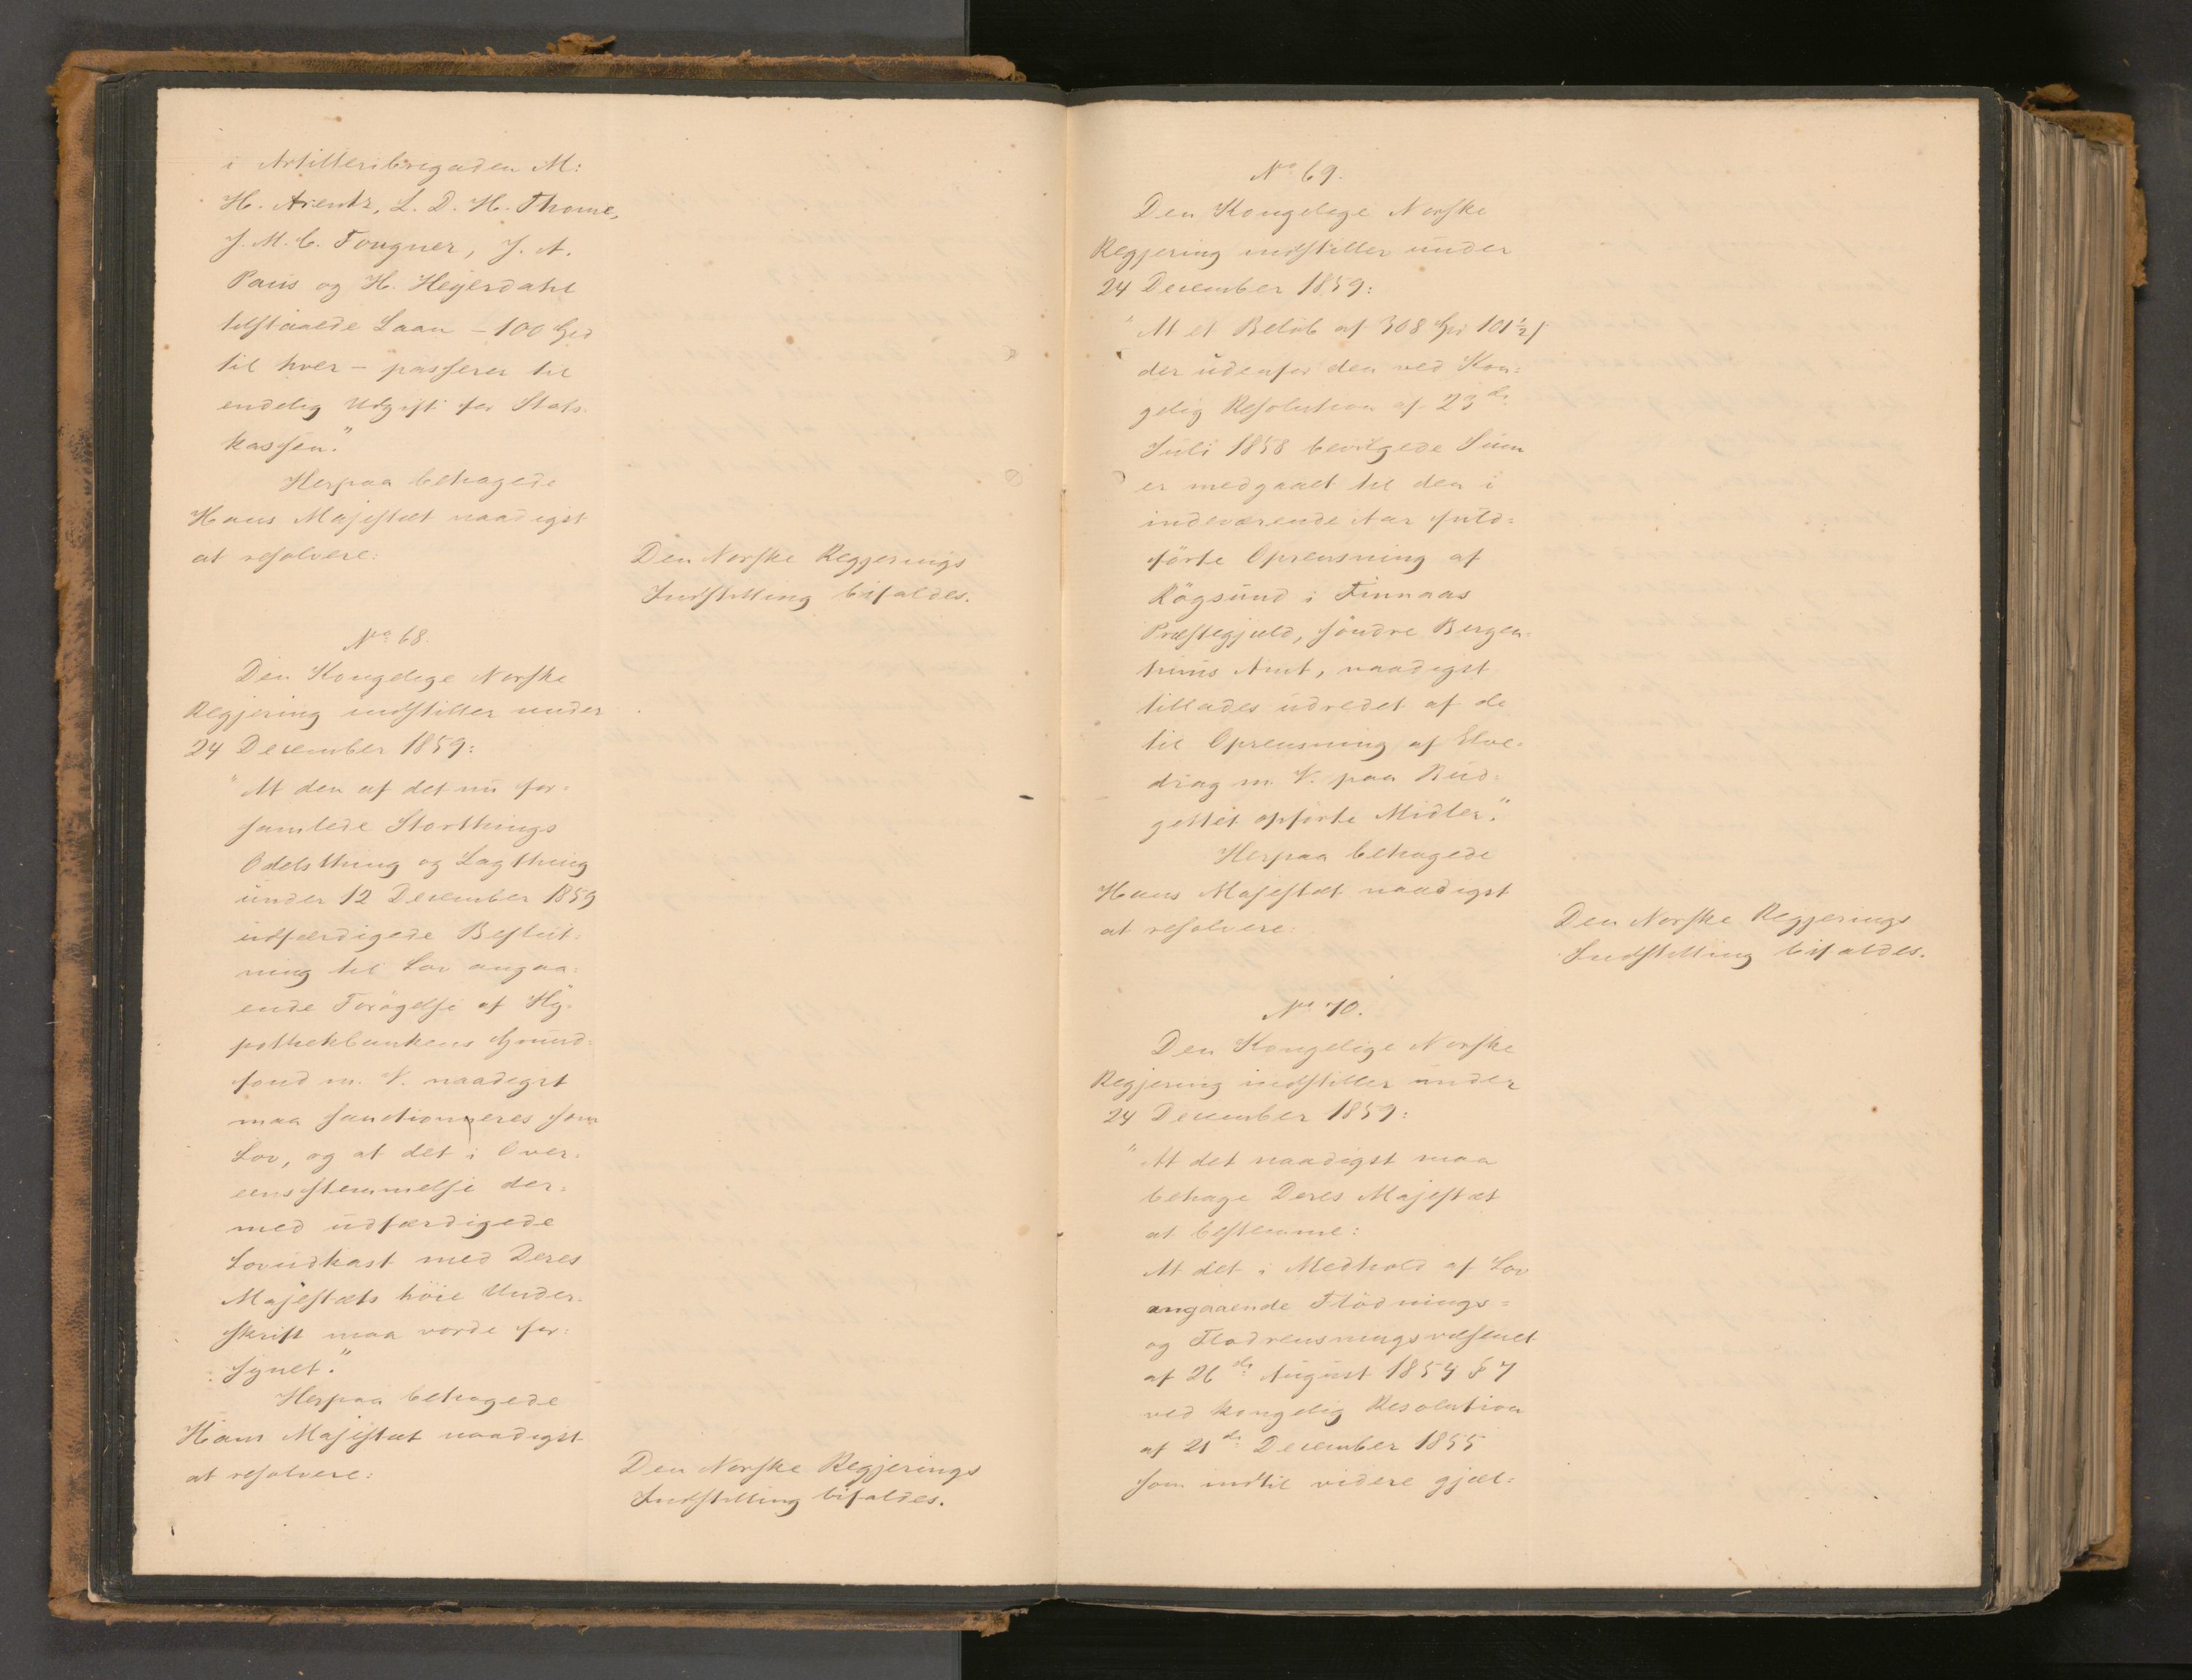 i Artilleribrigaden M:
H. Arentz, L. D. H. Thome,
J. M. C. Fougner, J. A.
Paus og H. Heyerdahl
tilstaaede Laan - 100 Spd
til hver - passerer til
endelig Udgift for Stats-
kassen."
Herpaa behagede
Hans Majestæt naadigst
at resolvere:
Den Norske Regjerings
Indstilling bifaldes.
No 68.
Den Kongelige Norske
Regjering indstiller under
24 December 1859:
"At den af det nu for-
samlede Storthings
Odelsthing og Lagthing
under 12 December 1859
udfærdigede Beslut-
ning til Lov angaa-
ende Forøgelse af Hy-
pothekbankens Grund-
fond m. V. naadigst
maa sanctioneres som
Lov, og at det i Over-
eensstemmelse der-
med udfærdigede
Lovudkast med Deres
Majestæts höie Under-
skrift maa vorde for-
synet."
Herpaa behagede
Hans Majestæt naadigst
at resolvere:
Den Norske Regjerings
Indstilling bifaldes.
No 69.
Den Kongelige Norske
Regjering indstiller under
24 December 1859:
"At et Beløb af 308 Spd 101 1/2 ſ
der udenfor den ved Kon-
gelig Resolution af 23de
Juli 1858 bevilgede Sum
er medgaaet til den i
indeværende Aar fuld-
förte Oprensning af
Rögsund i Finnaas
Præstegjæld, söndre Bergen-
huus Amt, naadigst
tillades udredet af de
til Oprensning af Elve-
drag m. V. paa Bud-
gettet opförte Midler."
Herpaa behagede
Hans Majestæt naadigst
at resolvere:
Den Norske Regjerings
Indstilling bifaldes.
No 70.
Den Kongelige Norske
Regjering indstiller under
24 December 1859:
"At det naadigst maa
behage Deres Majestæt
at bestemme:
At det i Medhold af Lov
angaaende Flödnings-
og Flodrensningsvæsenet
af 26de August 1854 § 7
ved kongelig Resolution
af 21de December 1855
som indtil videre gjæl-